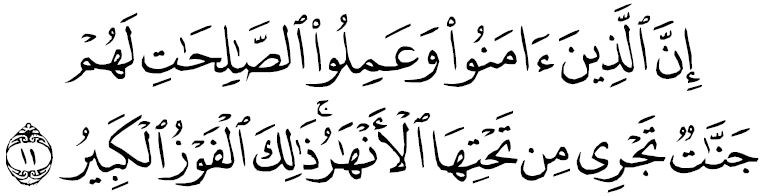 إِنَّ ٱلَّذِينَ ءَامَنُوا۟ وَعَمِلُوا۟ ٱلصَّـٰلِحَـٰتِ لَهُمْ
جَنَّـٰتٌ تَجْرِى مِن تَحْتِهَا ٱلْأَنْهَـٰرُ ۚ ذَٰلِكَ ٱلْفَوْزُ ٱلْكَبِيرُ ١١